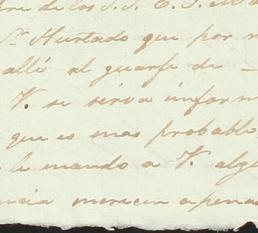 de los S. S. E. S.
Sr. Hurtado que por
allé al guarfe de
V. se sirva inform
que es mas probable
le mando a V. alg
merecen apena